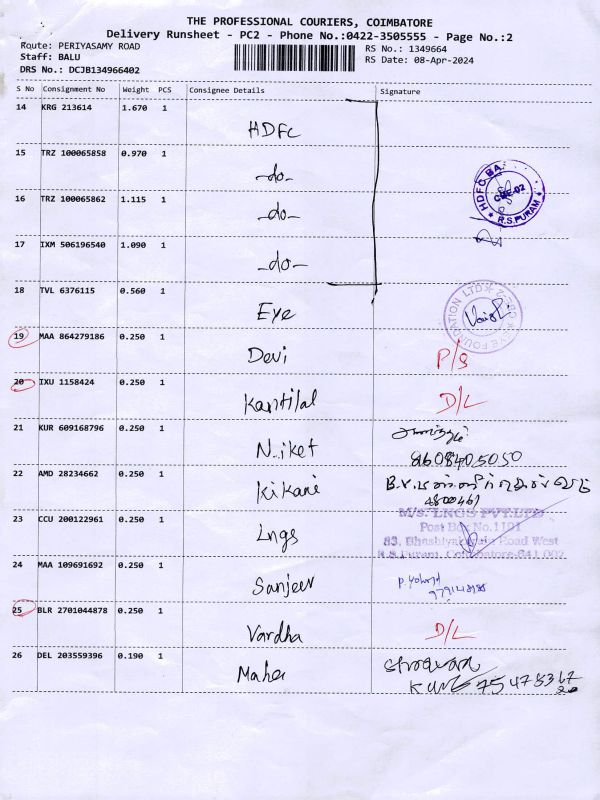 THE PROFESSIONAL COURIERS, COIMBATORE
Delivery Runsheet - PC2 - Phone No.:0422-3505555 - Page No.:2
Route: PERIYASAMY ROAD
Staff: BALU
DRS No.: DCJB134966402
RS No.: 1349664
RS Date: 08-Apr-2024
S No Consignment No Weight PCS Consignee Details Signature
14 KRG 213614 1.670 1
HDFC
15 TRZ 100065858 0.970 1
-do-
16 TRZ 100065862 1.115 1
-do-
HDFC BA
CBE-02
R.S.PURAM
17 IXM 506196540 1.090 1
-do-
18 TVL 6376115 0.560 1
Eye
EYE FOUNDATION LTD
19 MAA 864279186 0.250 1
Devi P/S
20 IXU 1158424 0.250 1
Kantilal D/L
21 KUR 609168796 0.250 1
Niket 8608405050
22 AMD 28234662 0.250 1
Kikani
23 CCU 200122961 0.250 1
Lngs
M/s. LNGS PVT.LTD
Post Box No.1101
83, Bhashiyakaralu Road West
R.S.Puram, Coimbatore-641 002
24 MAA 109691692 0.250 1
Sanjeev
25 BLR 2701044878 0.250 1
Vardha D/L
26 DEL 203559396 0.190 1
Maher